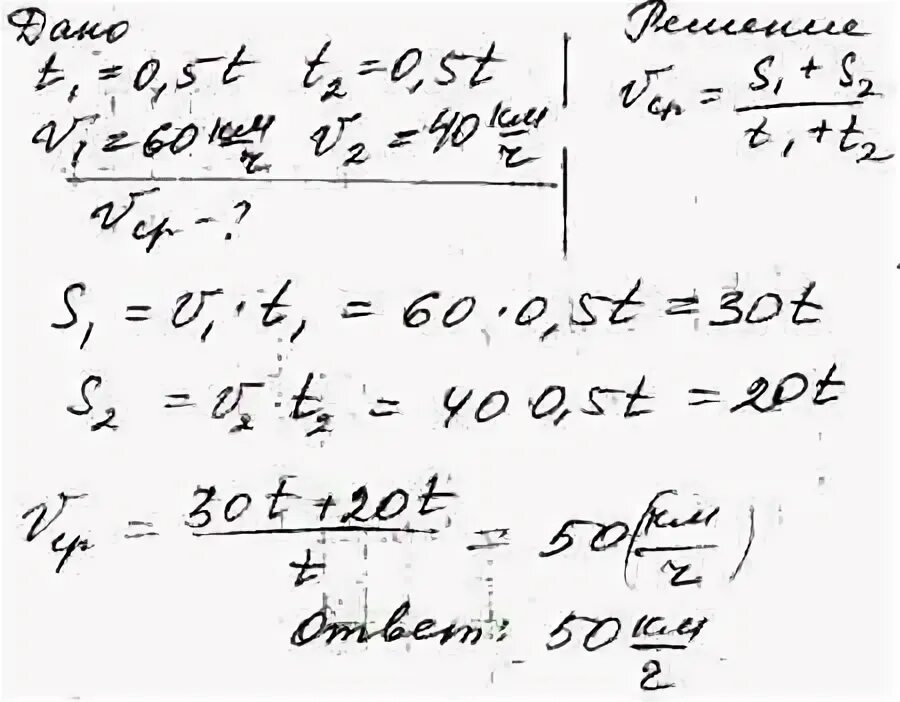 Дано
t₁ = 0,5t t₂ = 0,5t
v₁ = 60 км/ч v₂ = 40 км/ч
vср - ?
Решение
vср = (S₁ + S₂)/(t₁ + t₂)
S₁ = v₁ · t₁ = 60 · 0,5t = 30t
S₂ = v₂ · t₂ = 40 0,5t = 20t
vср = (30t + 20t)/t = 50 (км/ч)
Ответ: 50 км/ч